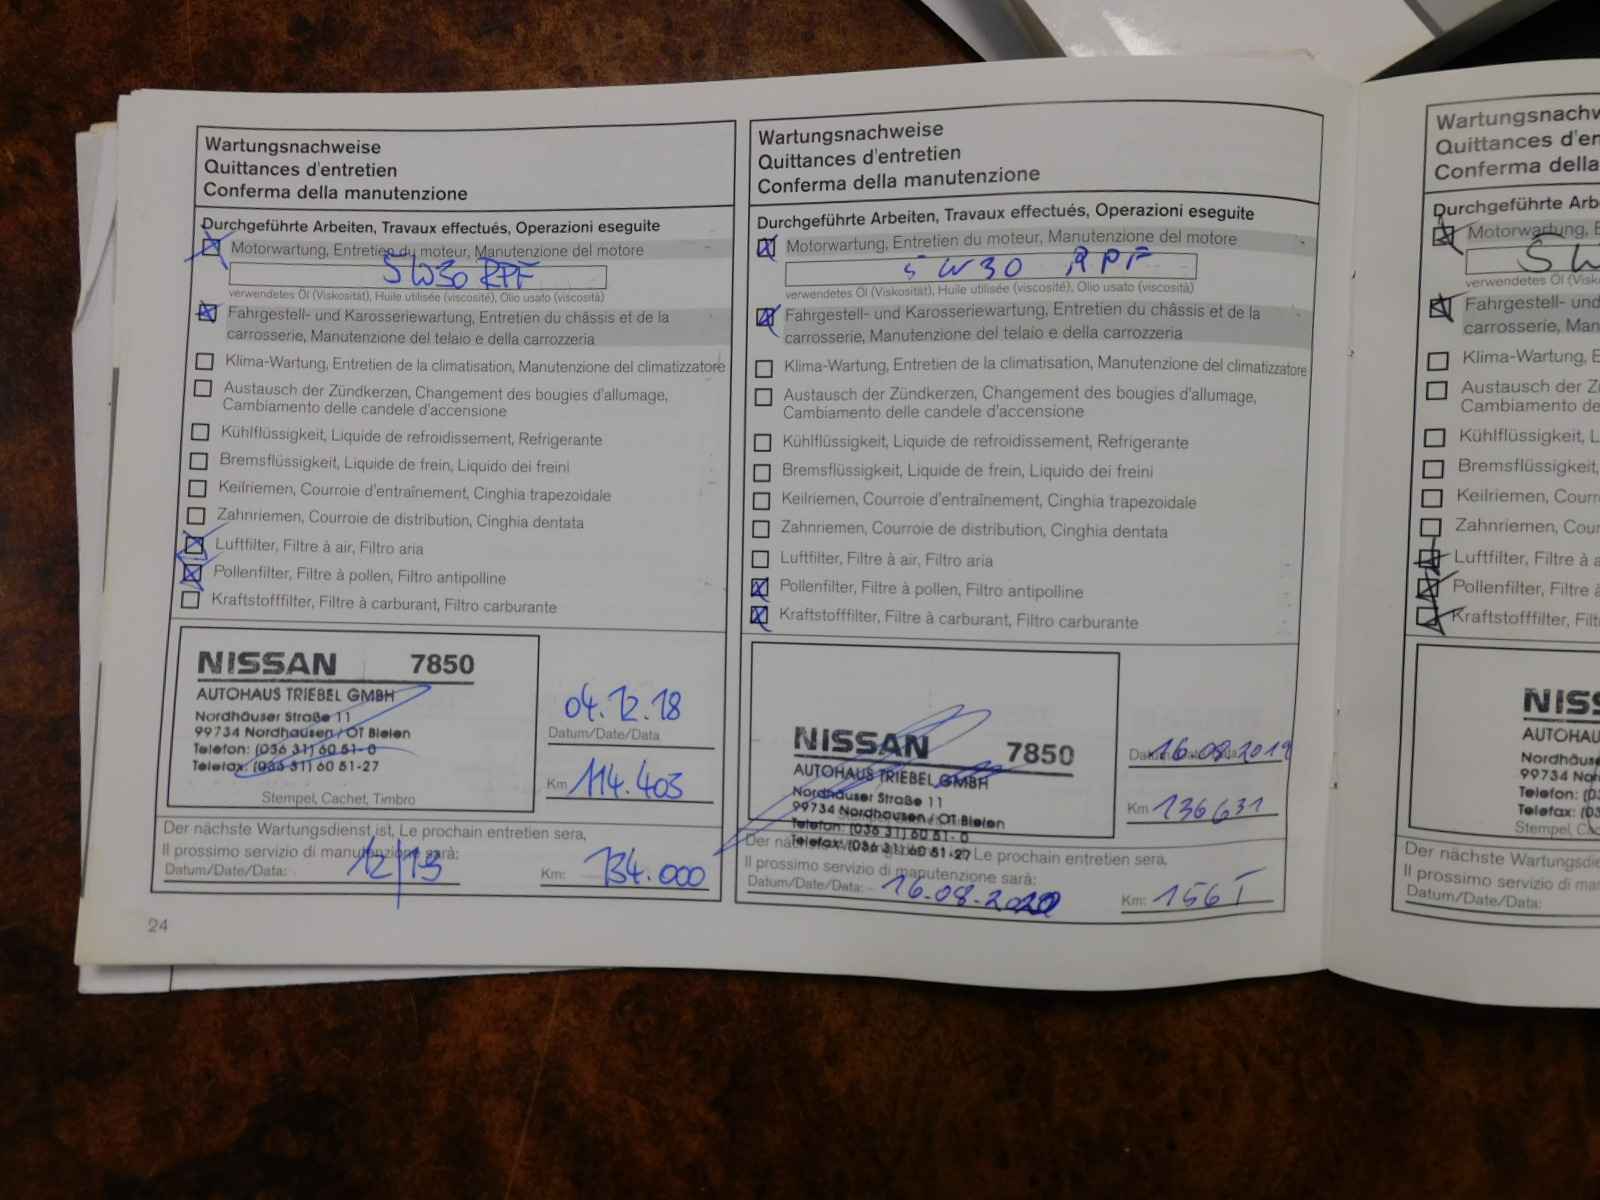 Wartungsnachweise
Quittances d'entretien
Conferma della manutenzione
Durchgeführte Arbeiten, Travaux effectués, Operazioni eseguite
Motorwartung, Entretien du moteur, Manutenzione del motore
5W30 RPF
verwendetes Öl (Viskosität), Huile utilisée (viscosité), Olio usato (viscosità)
Fahrgestell- und Karosseriewartung, Entretien du châssis et de la
carrosserie, Manutenzione del telaio e della carrozzeria
Klima-Wartung, Entretien de la climatisation, Manutenzione del climatizzatore
Austausch der Zündkerzen, Changement des bougies d'allumage,
Cambiamento delle candele d'accensione
Kühlflüssigkeit, Liquide de refroidissement, Refrigerante
Bremsflüssigkeit, Liquide de frein, Liquido dei freini
Keilriemen, Courroie d'entraînement, Cinghia trapezoidale
Zahnriemen, Courroie de distribution, Cinghia dentata
Luftfilter, Filtre à air, Filtro aria
Pollenfilter, Filtre à pollen, Filtro antipolline
Kraftstofffilter, Filtre à carburant, Filtro carburante
NISSAN 7850
AUTOHAUS TRIEBEL GMBH
Nordhäuser Straße 11
99734 Nordhausen / OT Bielen
Telefon: (036 31) 60 51- 0
Telefax: (036 31) 60 51-27
Stempel, Cachet, Timbro
04.12.18
Datum/Date/Data
Km 114.403
Der nächste Wartungsdienst ist, Le prochain entretien sera,
Il prossimo servizio di manutenzione sarà:
Datum/Date/Data: 12/19 Km: 134.000
24
Wartungsnachweise
Quittances d'entretien
Conferma della manutenzione
Durchgeführte Arbeiten, Travaux effectués, Operazioni eseguite
Motorwartung, Entretien du moteur, Manutenzione del motore
5W30 RPF
verwendetes Öl (Viskosität), Huile utilisée (viscosité), Olio usato (viscosità)
Fahrgestell- und Karosseriewartung, Entretien du châssis et de la
carrosserie, Manutenzione del telaio e della carrozzeria
Klima-Wartung, Entretien de la climatisation, Manutenzione del climatizzatore
Austausch der Zündkerzen, Changement des bougies d'allumage,
Cambiamento delle candele d'accensione
Kühlflüssigkeit, Liquide de refroidissement, Refrigerante
Bremsflüssigkeit, Liquide de frein, Liquido dei freini
Keilriemen, Courroie d'entraînement, Cinghia trapezoidale
Zahnriemen, Courroie de distribution, Cinghia dentata
Luftfilter, Filtre à air, Filtro aria
Pollenfilter, Filtre à pollen, Filtro antipolline
Kraftstofffilter, Filtre à carburant, Filtro carburante
NISSAN 7850
AUTOHAUS TRIEBEL GMBH
Nordhäuser Straße 11
99734 Nordhausen / OT Bielen
Telefon: (036 31) 60 51- 0
Telefax: (036 31) 60 51-27
16.08.2019
Km 136631
Der Le prochain entretien sera,
Il prossimo servizio di manutenzione sarà:
Datum/Date/Data: 16.08.2020 Km: 156 T
Wartungsnachw
Quittances d'en
Conferma della
Durchgeführte Arb
Motorwartung, E
5W
verwendetes Öl (Visko
Fahrgestell- und
carrosserie, Man
Klima-Wartung, E
Austausch der Z
Cambiamento de
Kühlflüssigkeit, L
Bremsflüssigkeit,
Keilriemen, Courr
Zahnriemen, Cou
Luftfilter, Filtre à a
Pollenfilter, Filtre à
Kraftstofffilter, Filt
NISS
AUTOHAU
Nordhäuse
99734 Nor
Telefon: (0
Telefax: (03
Stempel, Cac
Der nächste Wartungsdie
Il prossimo servizio di ma
Datum/Date/Data: